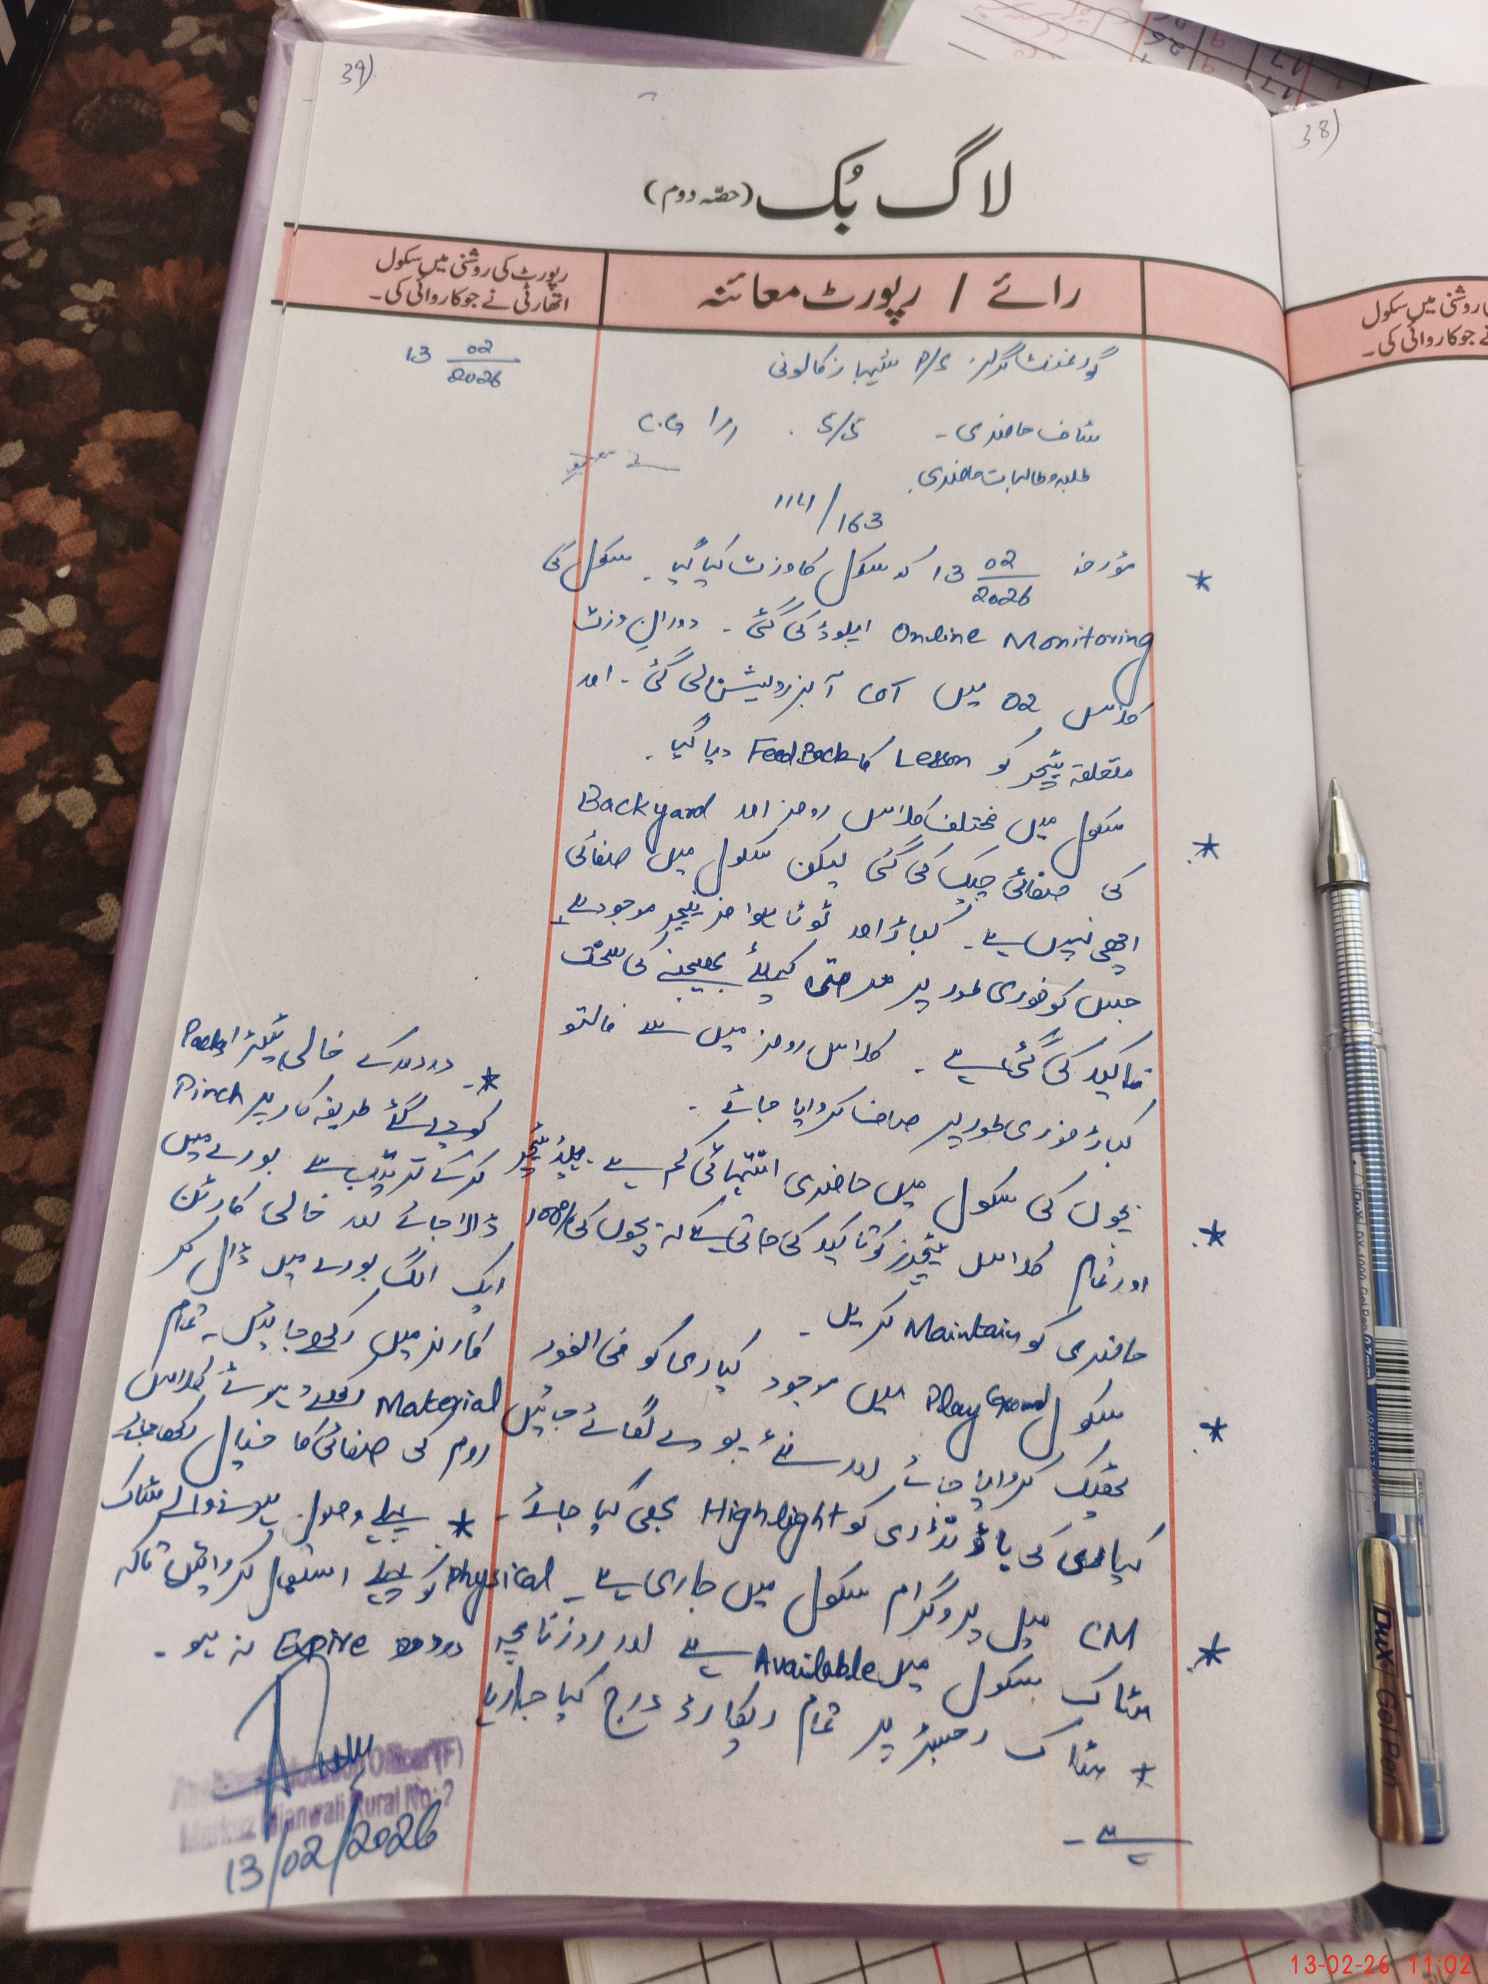 39)
لاگ بُک (حصّہ دوم)
رائے / رپورٹ معائنہ
رپورٹ کی روشنی میں سکول
اتھارٹی نے جو کاروائی کی۔
13 02/2026
گورنمنٹ گرلز P/S شہباز کالونی
سٹاف حاضری۔ 5/5 . 1/1 C.G
طلبہ و طالبات حاضری۔
114/163
* مؤرخہ 13 02/2026 کو سکول کا وزٹ کیا گیا۔ سکول کی
Online Monitoring اپلوڈ کی گئی۔ دورانِ وزٹ
کلاس 02 میں آبزرویشن لی گئی۔ اور
متعلقہ ٹیچر کو Lesson کا FeedBack دیا گیا۔
* سکول میں مختلف کلاس رومز اور Backyard
کی صفائی چیک کی گئی لیکن سکول میں صفائی
اچھی نہیں ہے۔ کباڑ اور ٹوٹا ہوا فرنیچر موجود ہے
جس کو فوری طور پر مرمتی کیلئے بھیجنے کی سخت
تاکید کی گئی ہے۔ کلاس رومز میں سے فالتو
کباڑ فوری طور پر صاف کروایا جائے۔
* بچوں کی سکول میں حاضری انتہائی کم ہے۔ ہیڈ ٹیچر
اور تمام کلاس ٹیچرز کو تاکید کی جاتی ہے کہ بچوں کی 100%
حاضری کو Maintain کریں۔
* سکول PlayGround میں موجود کیاری کو فی الفور
ٹھیک کروایا جائے اور نئے پودے لگائے جائیں
کیاری کی باؤنڈری کو Highlight بھی کیا جائے۔
* CM میل پروگرام سکول میں جاری ہے۔ Physical
سٹاک سکول میں Available ہے اور روزنامچہ
* سٹاک رجسٹر پر تمام ریکارڈ درج کیا جا رہا
ہے۔
* دودھ کے خالی پیکٹز Packet
کو دیے گئے طریقہ کار پر Pinch
کرکے ترتیب سے بورے میں
ڈالا جائے اور خالی کارٹن
ایک الگ بورے میں ڈال کر
کارنر میں رکھے جائیں۔ تمام
Material رکھتے ہوئے کلاس
روم کی صفائی کا خیال رکھا جائے
* پہلے وصول ہونے والے سٹاک
کو پہلے استعمال کروائیں تاکہ
دودھ Expire نہ ہو۔
Education Officer (F)
Markaz Mianwali Rural No. 2
13/02/2026
38)
روشنی میں سکول
نے جو کاروائی کی۔
DUX Gel Pen
13-02-26 11:02